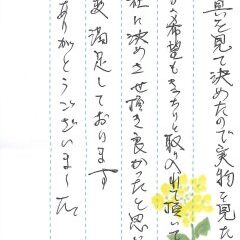 真を見て決めたので実物を見た
の希望もきっちりと取り入れて頂いて
社に決めさせ頂き良かったと思い
変満足しております
ありがとうございました